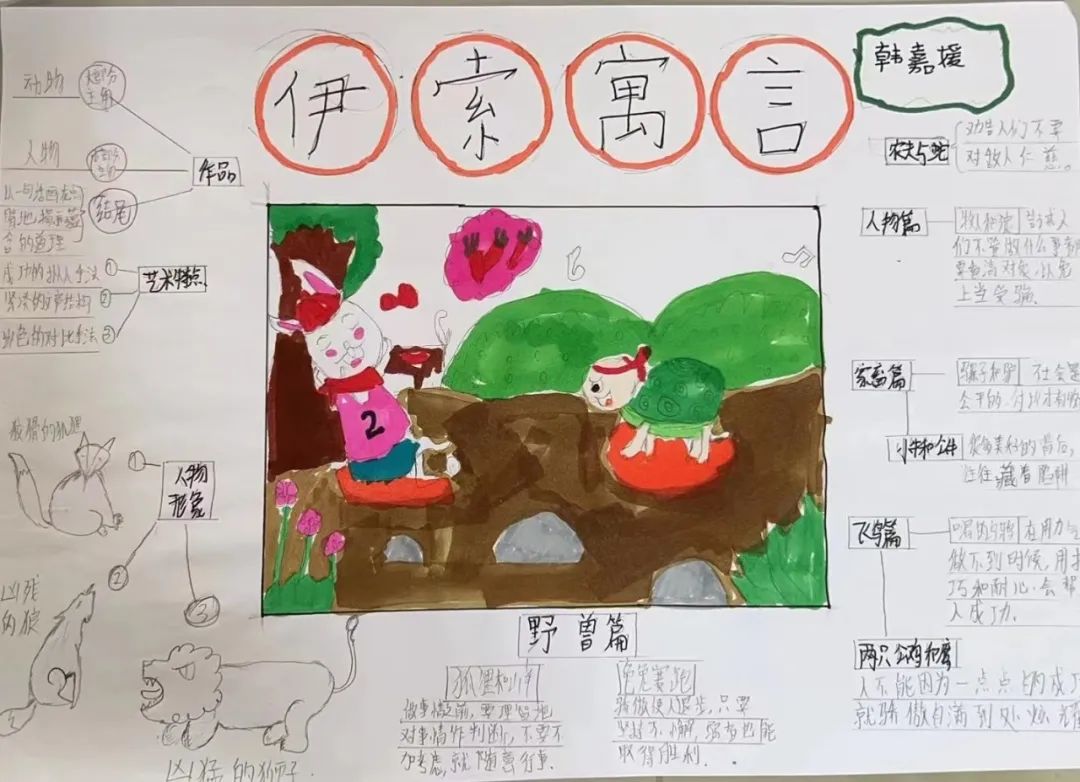 伊索寓言
韩嘉援
动物
主角
人物
作品
结尾
从一句话画龙点
睛地揭示蕴
含的道理
艺术特点
① 成功的拟人手法
② 紧凑的文章结构
③ 出色的对比手法
人物
形象
①
狡猾的狐狸
②
凶残
的狼
③
凶猛的狮子
2
农夫与蛇
劝告人们不要
对敌人仁慈。
人物篇
告诉人
们不管做什么事都
要看清对象,以免
上当受骗
家畜篇
骡子和驴
社会是
公平的
小牛和公牛
的背后,
往往藏着陷阱
飞鸟篇
在用力气
做不到时候,用技
巧和耐心会帮
人成功.
两只公鸡和鹰
人不能因为一点点的成功
就骄傲自满到处炫耀
野兽篇
狐狸和山羊
做事情之前,要理智地
对事情作判断,不要不
加考虑,就随意行事.
龟兔赛跑
骄傲使人退步,只要
坚持不懈,弱者也能
取得胜利.